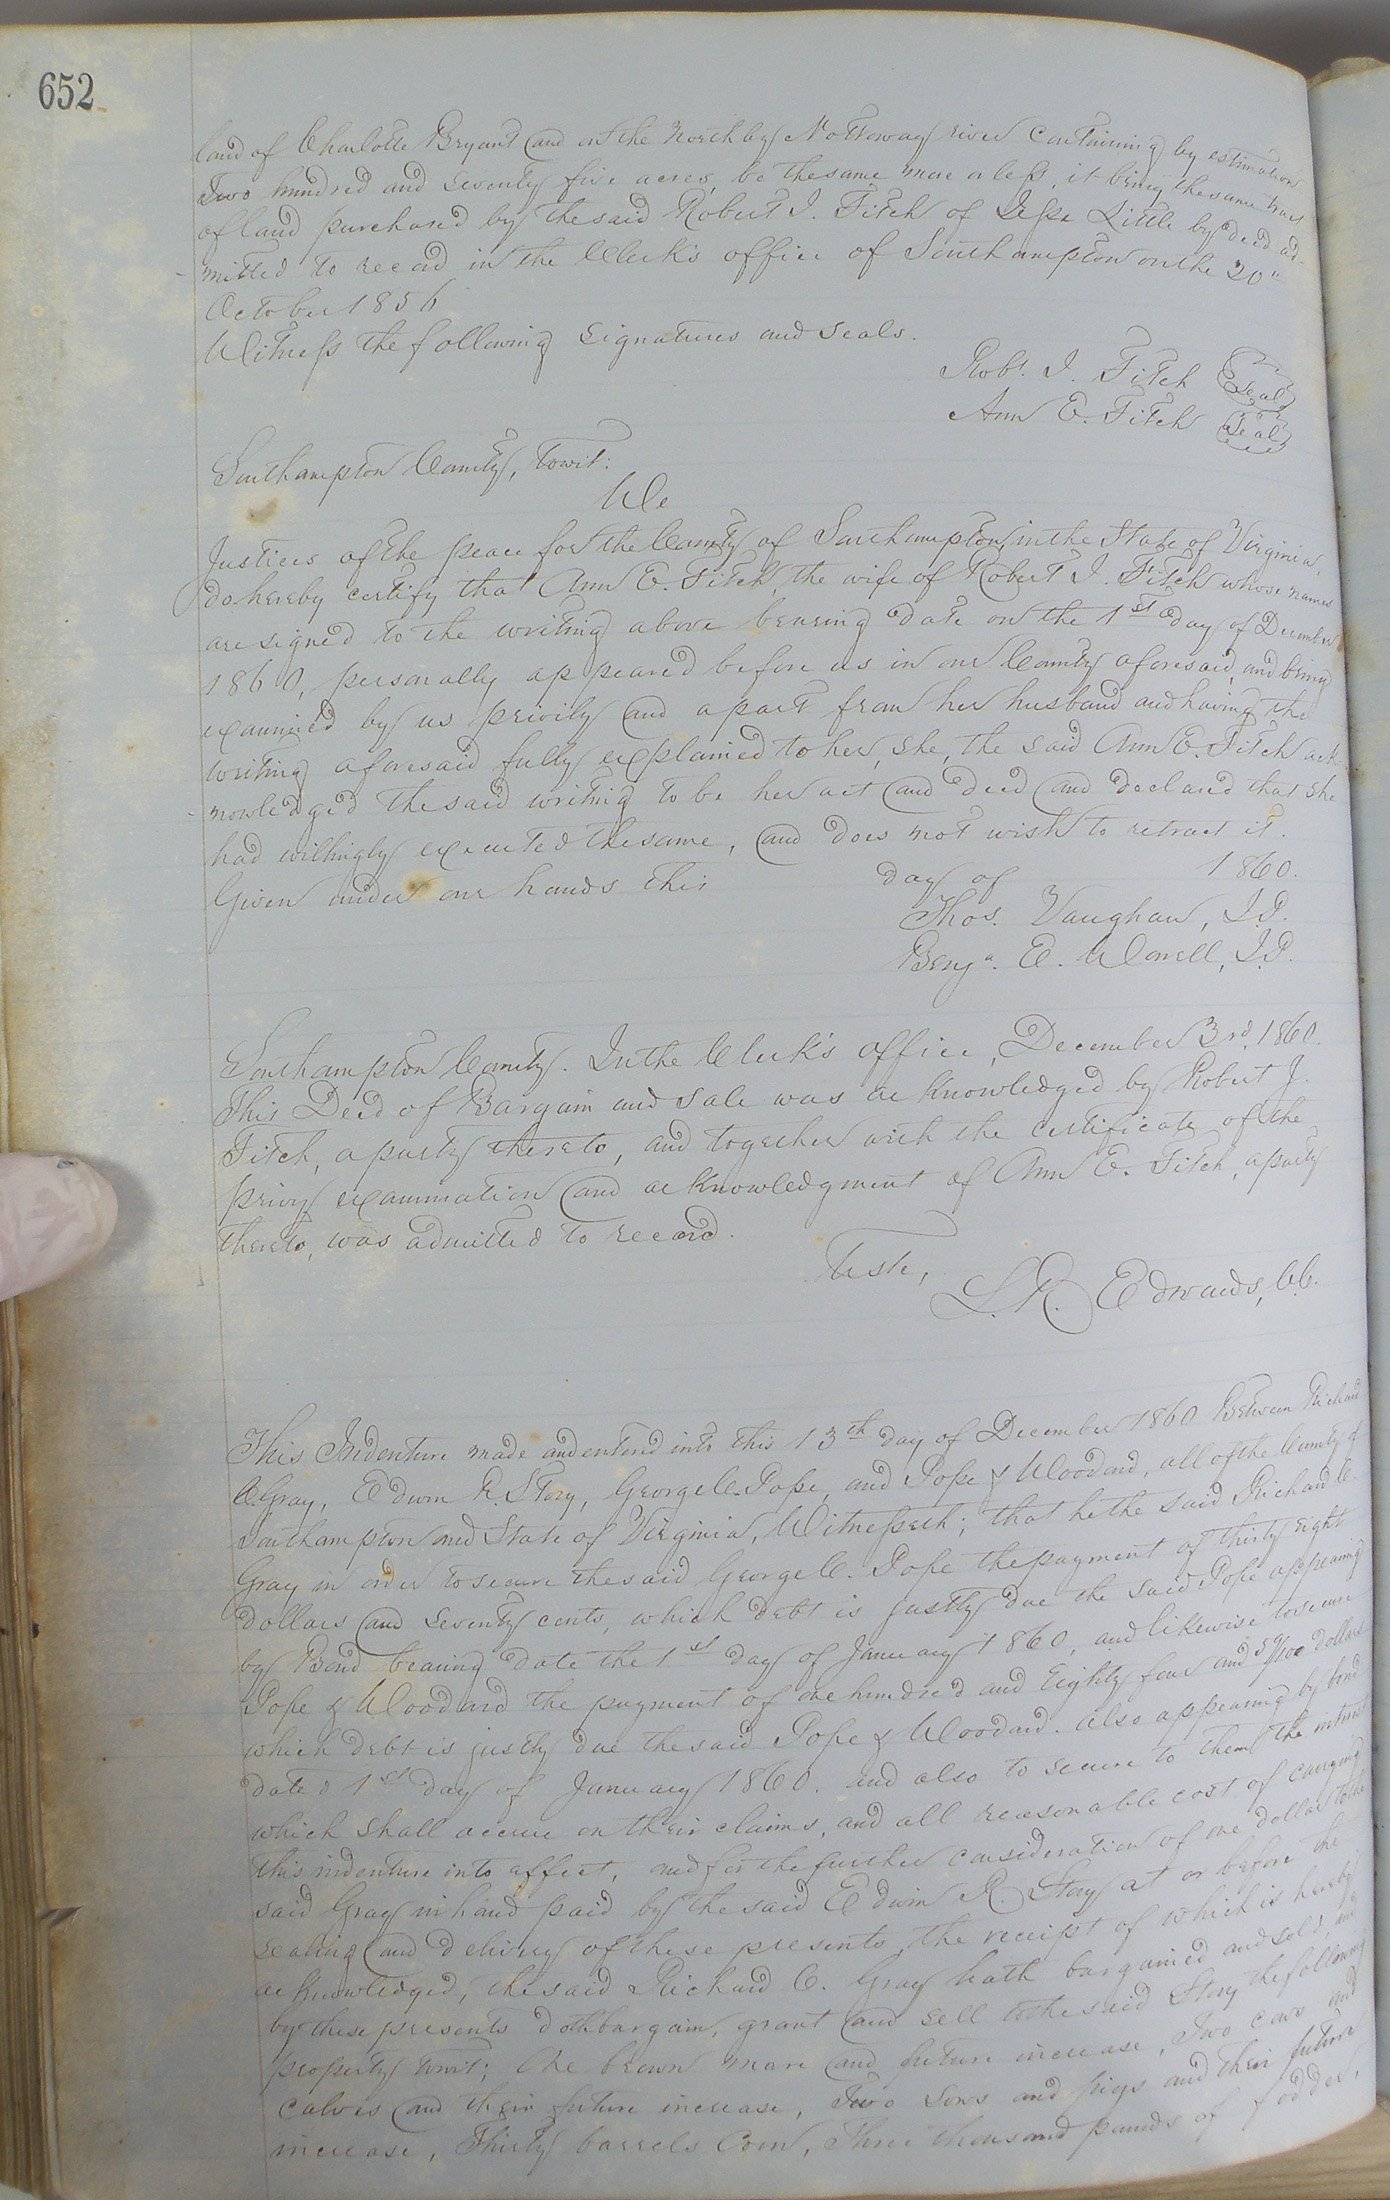 652
land of Charlotte Bryant and on the North by Nottoway river containing by estimation
Two hundred and seventy five acres, be the same more or less, it being the same tract
of land purchased by the said Robert J. Fitch of Jesse Little by deed ad-
mitted to record in the Clerk's office of Southampton on the 20"
October 1856
Witness the following signatures and seals.
Robt. J. Fitch Seal
Ann E. Fitch Seal
Southampton County, towit:
We
Justices of the peace for the County of Southampton, in the State of Virginia,
do hereby certify that Ann E. Fitch, the wife of Robert J. Fitch whose names
are signed to the writing above bearing date on the 1st day of December
1860, personally appeared before us in our County aforesaid, and being
examined by us privily and apart from her husband and having the
writing aforesaid fully explained to her, she, the said Ann E. Fitch ack-
nowledged the said writing to be her act and deed and declared that she
had willingly executed the same, and does not wish to retract it.
Given under our hands this day of 1860.
Thos. Vaughan, J.P.
Benja. E. Worrell, J.P.
Southampton County. In the Clerk's office, December 3rd, 1860.
This Deed of Bargain and Sale was acknowledged by Robert J.
Fitch, a party thereto, and together with the certificate of the
privy examination and acknowledgment of Ann E. Fitch, a party
thereto, was admitted to record.
Teste,
L. R. Edwards, C.C.
This Indenture made and entered into this 13th day of December 1860 Between Richard
C. Gray, Edwin R. Story, George C. Pope, and Pope & Woodard, all of the County of
Southampton and State of Virginia, Witnesseth; that he the said Richard C.
Gray in order to secure the said George C. Pope the payment of thirty eight
dollars and seventy cents, which debt is justly due the said Pope appearing
by Bond bearing date the 1st day of January 1860, and likewise to secure
Pope & Woodard the payment of one hundred and Eighty four and 59/100 dollars
which debt is justly due the said Pope & Woodard. also appearing by bond
dated 1st day of January 1860. and also to secure to them the interest
which shall accrue on their claims, and all reasonable cost of carrying
this indenture into affect, and for the further consideration of one dollar to the
said Gray in hand paid by the said Edwin R. Story at or before the
sealing and delivery of these presents, the receipt of which is hereby
acknowledged, the said Richard C. Gray hath bargained and sold, and
by these presents doth bargain, grant and sell to the said Story the following
property towit; One brown mare and future increase, Two cows and
calves and their future increase, Two Sows and pigs and their future
increase, Thirty barrels Corn, Three thousand pounds of fodder,